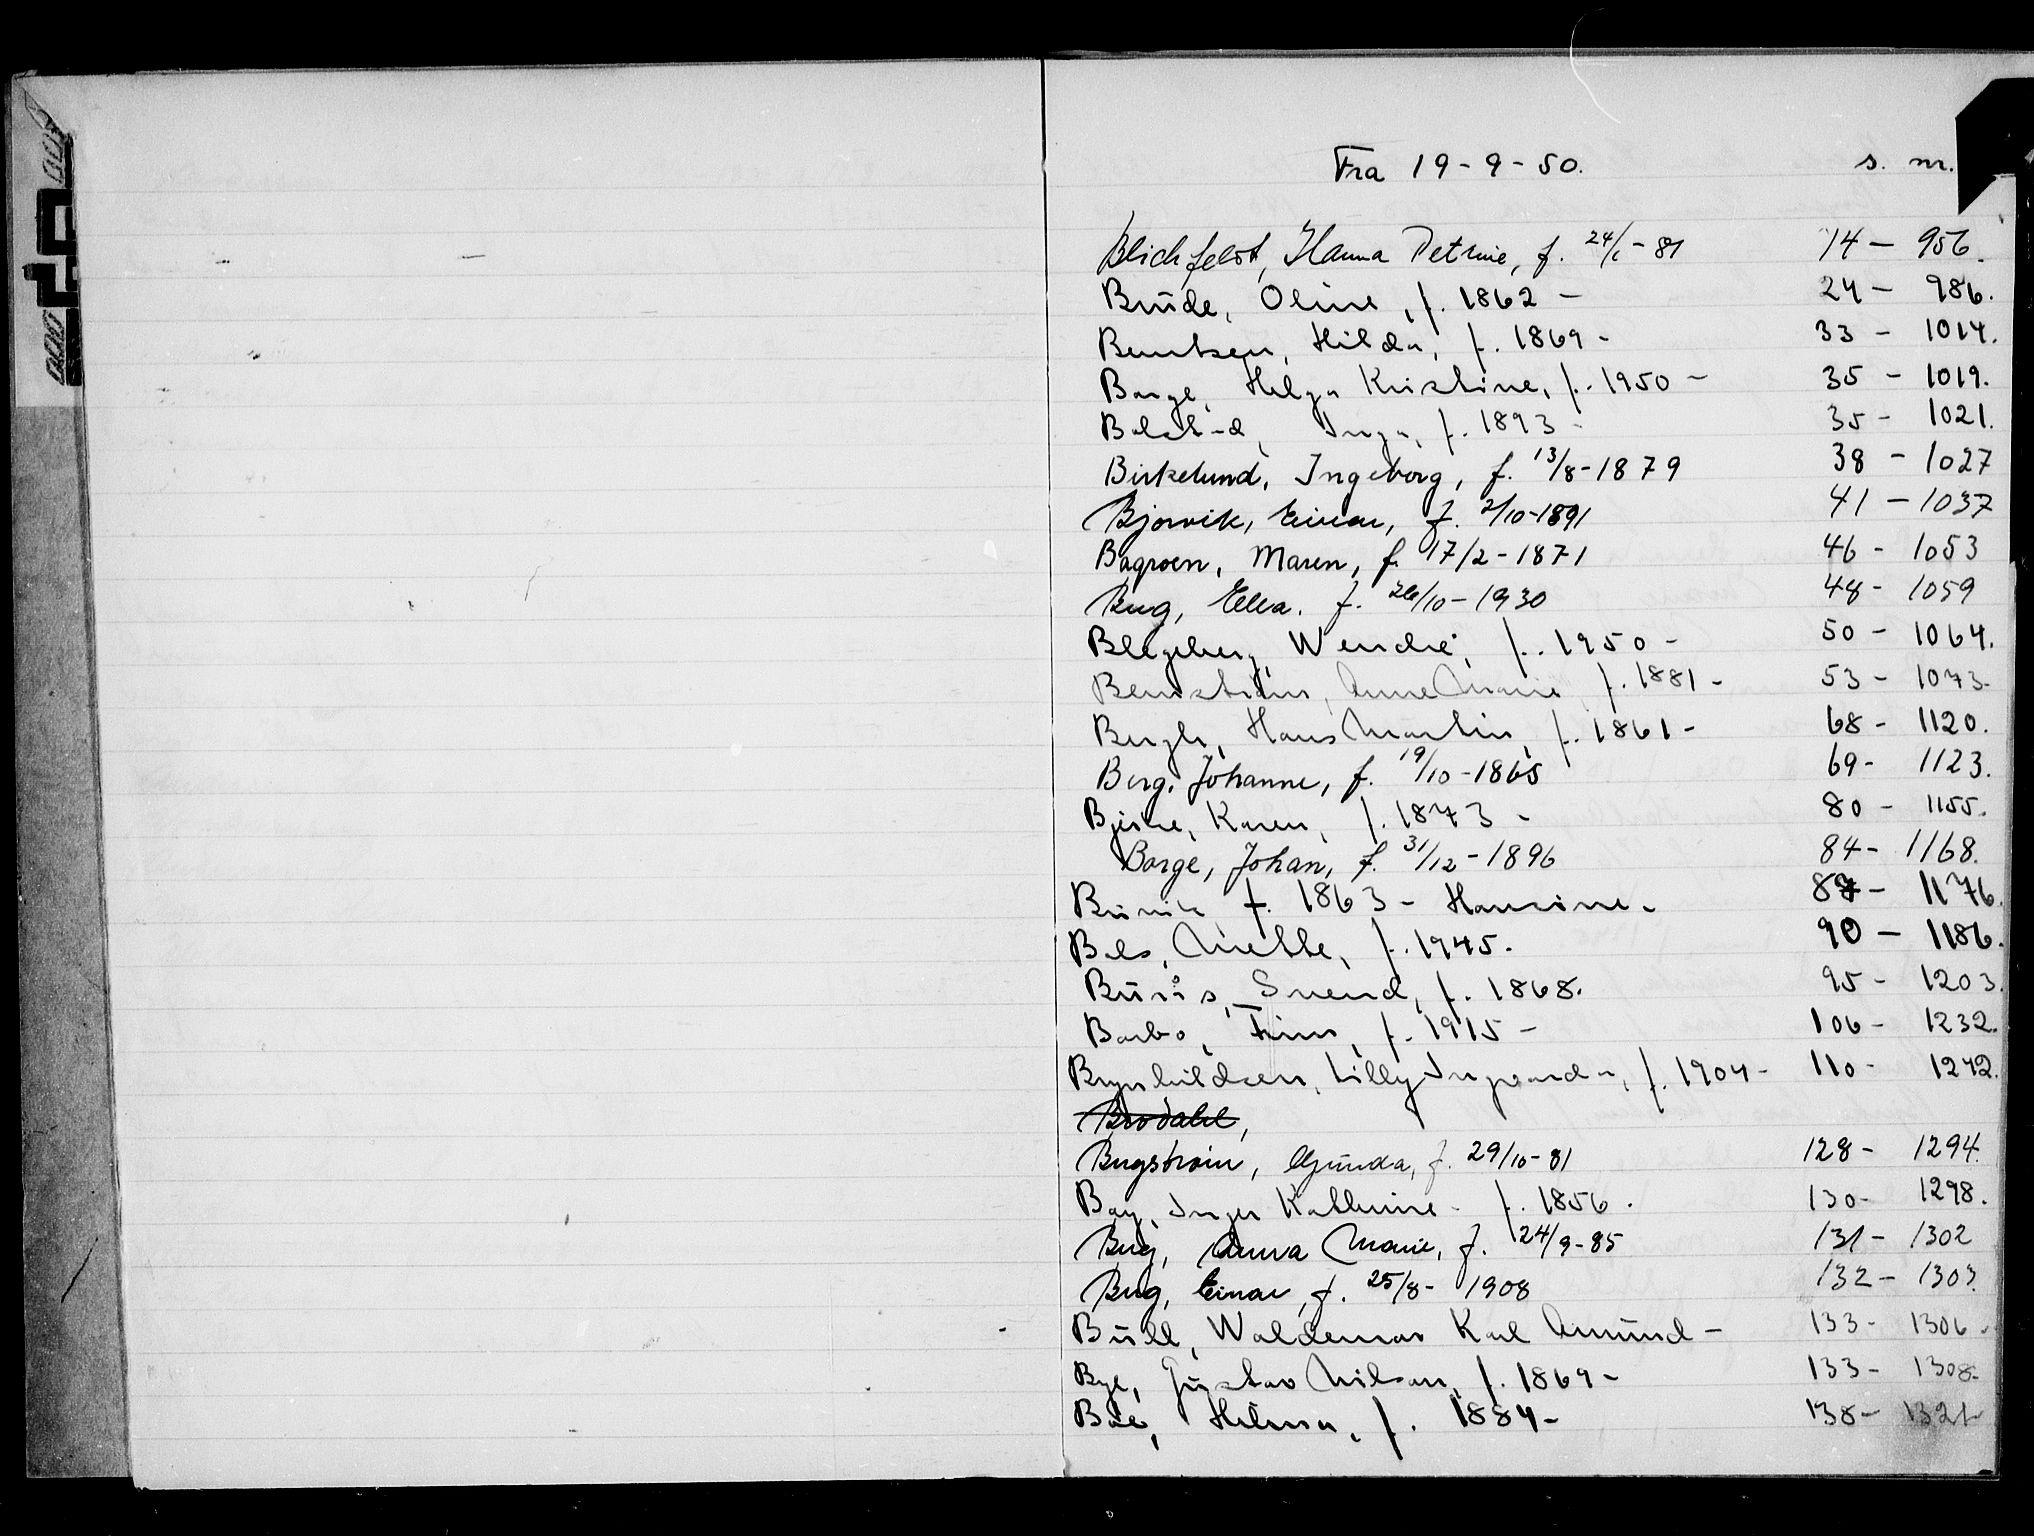 Fra 19-9-50. s. nr.
Blichfeldt, Hanna Petrine, f. 24/1-81 14 - 956.
Brude, Oline, f. 1862 - 24 - 986.
Berntsen, Hilda, f. 1869 - 33 - 1014.
Borge, Helga Kristine, f. 1950 - 35 - 1019.
Bolstad, Inga, f. 1893 - 35 - 1021.
Birkelund, Ingeborg, f. 13/8-1879 38 - 1027
Bjorvik, Einar, f. 2/10-1891 41 - 1037
Bagroen, Maren, f. 17/2-1871 46 - 1053
Berg, Ellea. f. 26/10-1930 48 - 1059
Blegeberg, Wenche, f. 1950 - 50 - 1064.
Anne Marie f. 1881 - 53 - 1073.
Bergh, Hans Martin, f. 1861 - 68 - 1120.
Berg, Johanne, f. 19/10-1865 69 - 1123.
Bjerke, Karen, f. 1873 - 80 - 1155.
Borge, Johan, f. 31/12-1896 84 - 1168.
f. 1863 - Hansine. 87 - 1176.
Bals, Mette, f. 1945. 90 - 1186.
Buräs, Svend, f. 1868. 95 - 1203.
Barbo, Finn, f. 1915 - 106 - 1232.
Brynhildsen, Lilly Ingvarda, f. 1904 - 110 - 1242.
Brodahl,
Bergstrøm, Gunda, f. 29/10-81 128 - 1294.
Bay, Inger Kathrine - f. 1856. 130 - 1298.
Berg, Anna Marie, f. 24/9-85 131 - 1302
Berg, Einar, f. 25/8-1908 132 - 1303.
Bull, Waldemar Karl Amund - 133 - 1306.
Bye, Gustav Nilsen, f. 1869 - 133 - 1308.
Boe, Helena, f. 1884 - 138 - 1321